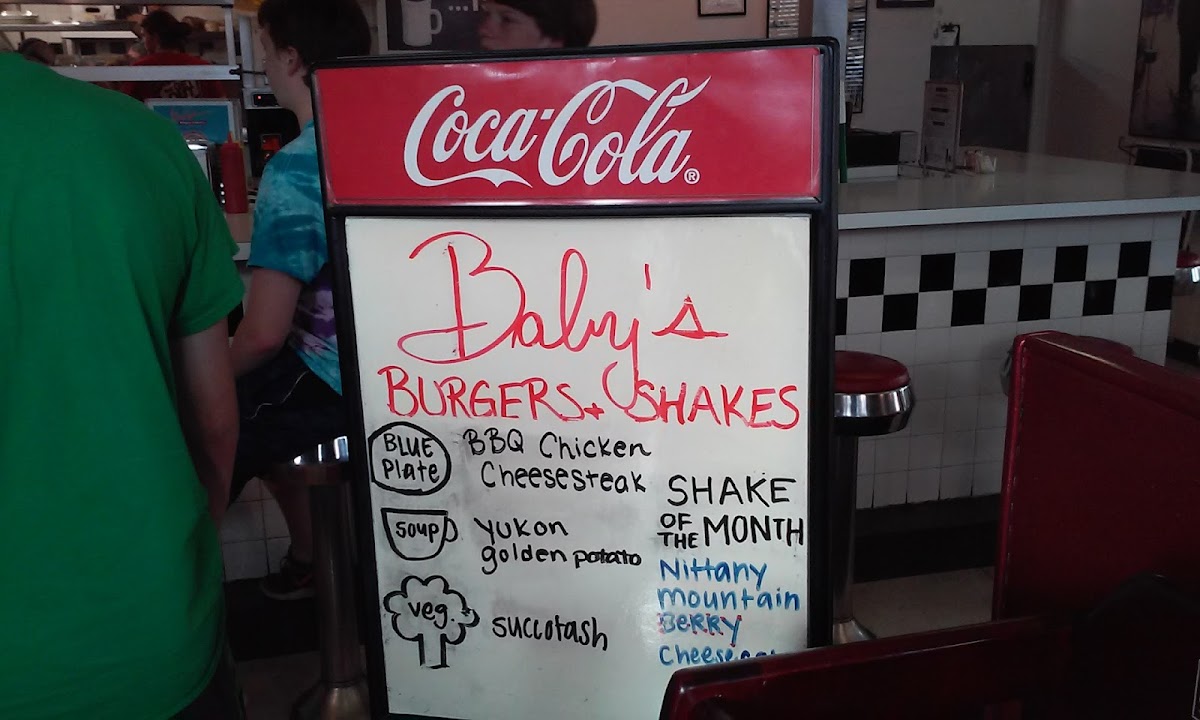 Coca-Cola®
Baby's
BURGERS + SHAKES
BLUE
Plate
BBQ Chicken
Cheesesteak
SOUP
yukon
golden potato
veg.
succotash
SHAKE
OF THE MONTH
Nittany
mountain
BERRY